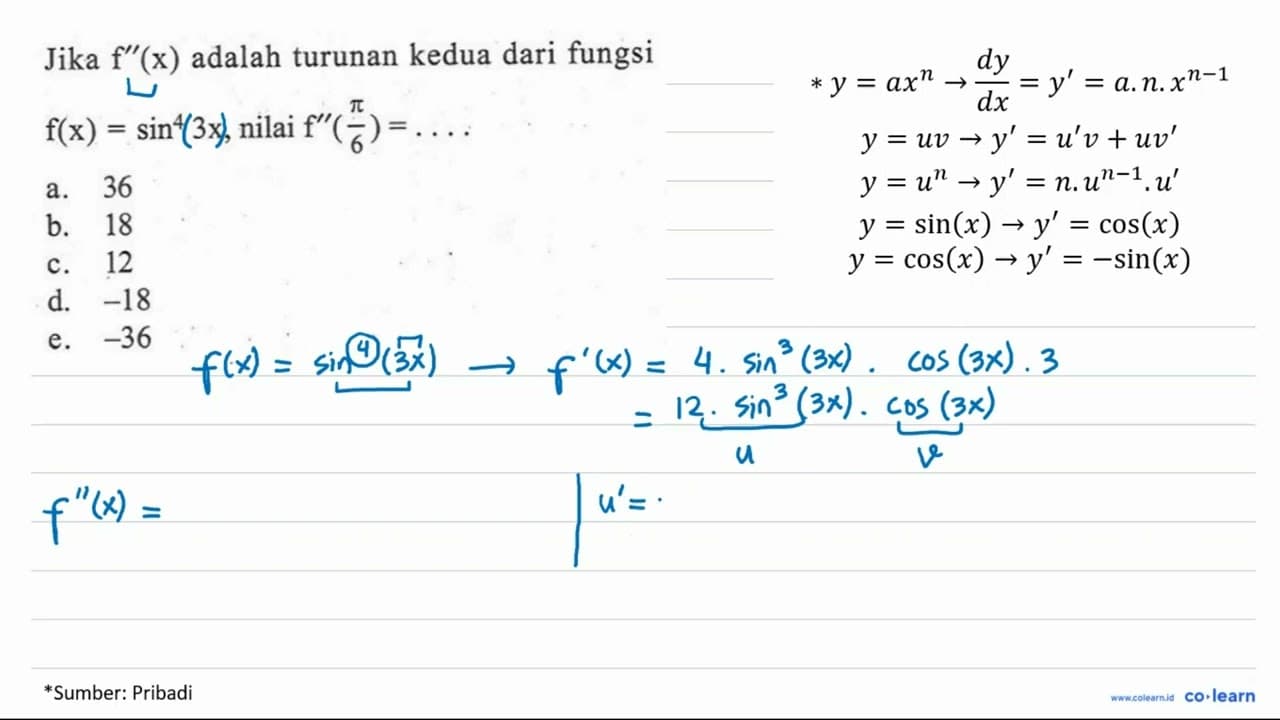 Jika f″(x) adalah turunan kedua dari fungsi
f(x) = sin⁴(3x), nilai f″(π/6) = . . . .
a. 36
b. 18
c. 12
d. –18
e. –36
* y = axⁿ → dy/dx = y′ = a.n.xⁿ⁻¹
y = uv → y′ = u′v + uv′
y = uⁿ → y′ = n.uⁿ⁻¹.u′
y = sin(x) → y′ = cos(x)
y = cos(x) → y′ = −sin(x)
f(x) = sin⁴(3x) → f'(x) = 4 . sin³(3x) . cos(3x) . 3
= 12 . sin³(3x) . cos(3x)
u v
f"(x) = | u' = .
*Sumber: Pribadi
www.colearn.id co·learn